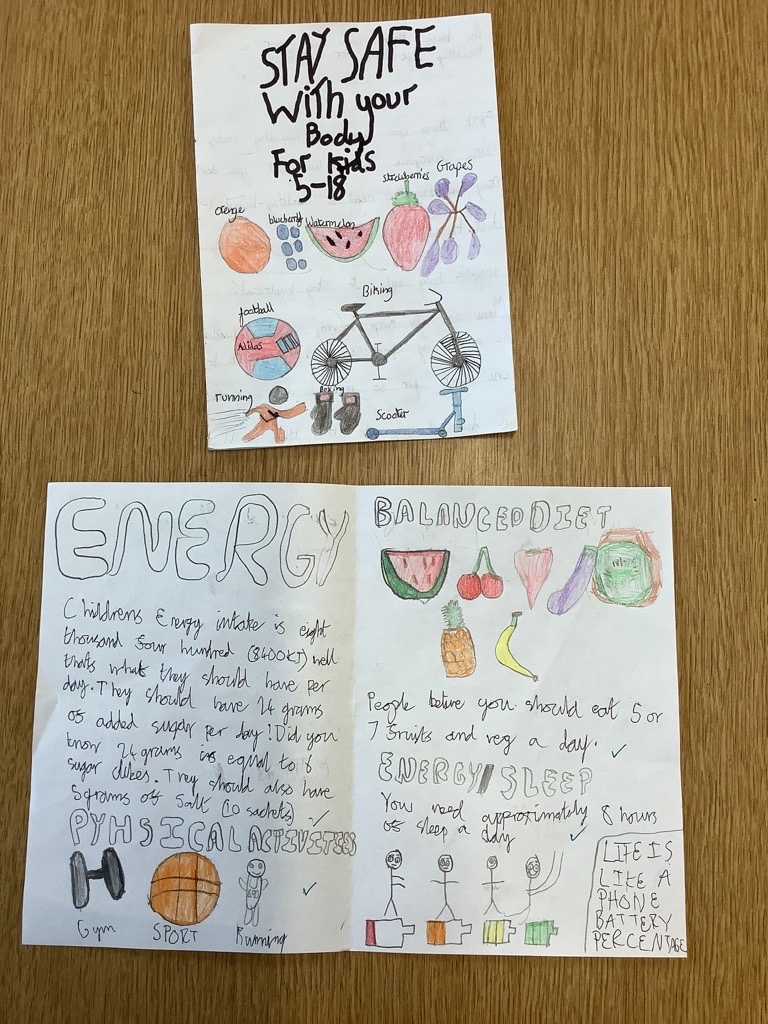 STAY SAFE
With your
Body
For Kids
5-18
orange
blueberry
Watermelon
strawberries
Grapes
football
Adidas
Biking
running
Boxing
Scooter
ENERGY
Childrens Energy intake is eight
thousand four hundred (8400KJ) well
thats what they should have per
day. They should have 24 grams
of added sugar per day! Did you
know 24 grams is equal to 6
sugar cubes. They should also have
5grams of salt (10 sachets).
PYHSICAL ACTIVITIES
Gym
SPORT
Running
BALANCED DIET
People belive you should eat 5 or
7 fruits and veg a day.
ENERGY/SLEEP
You need approximately 8 hours
of sleep a day
LIFE IS
LIKE A
PHONE
BATTERY
PERCENTAGE